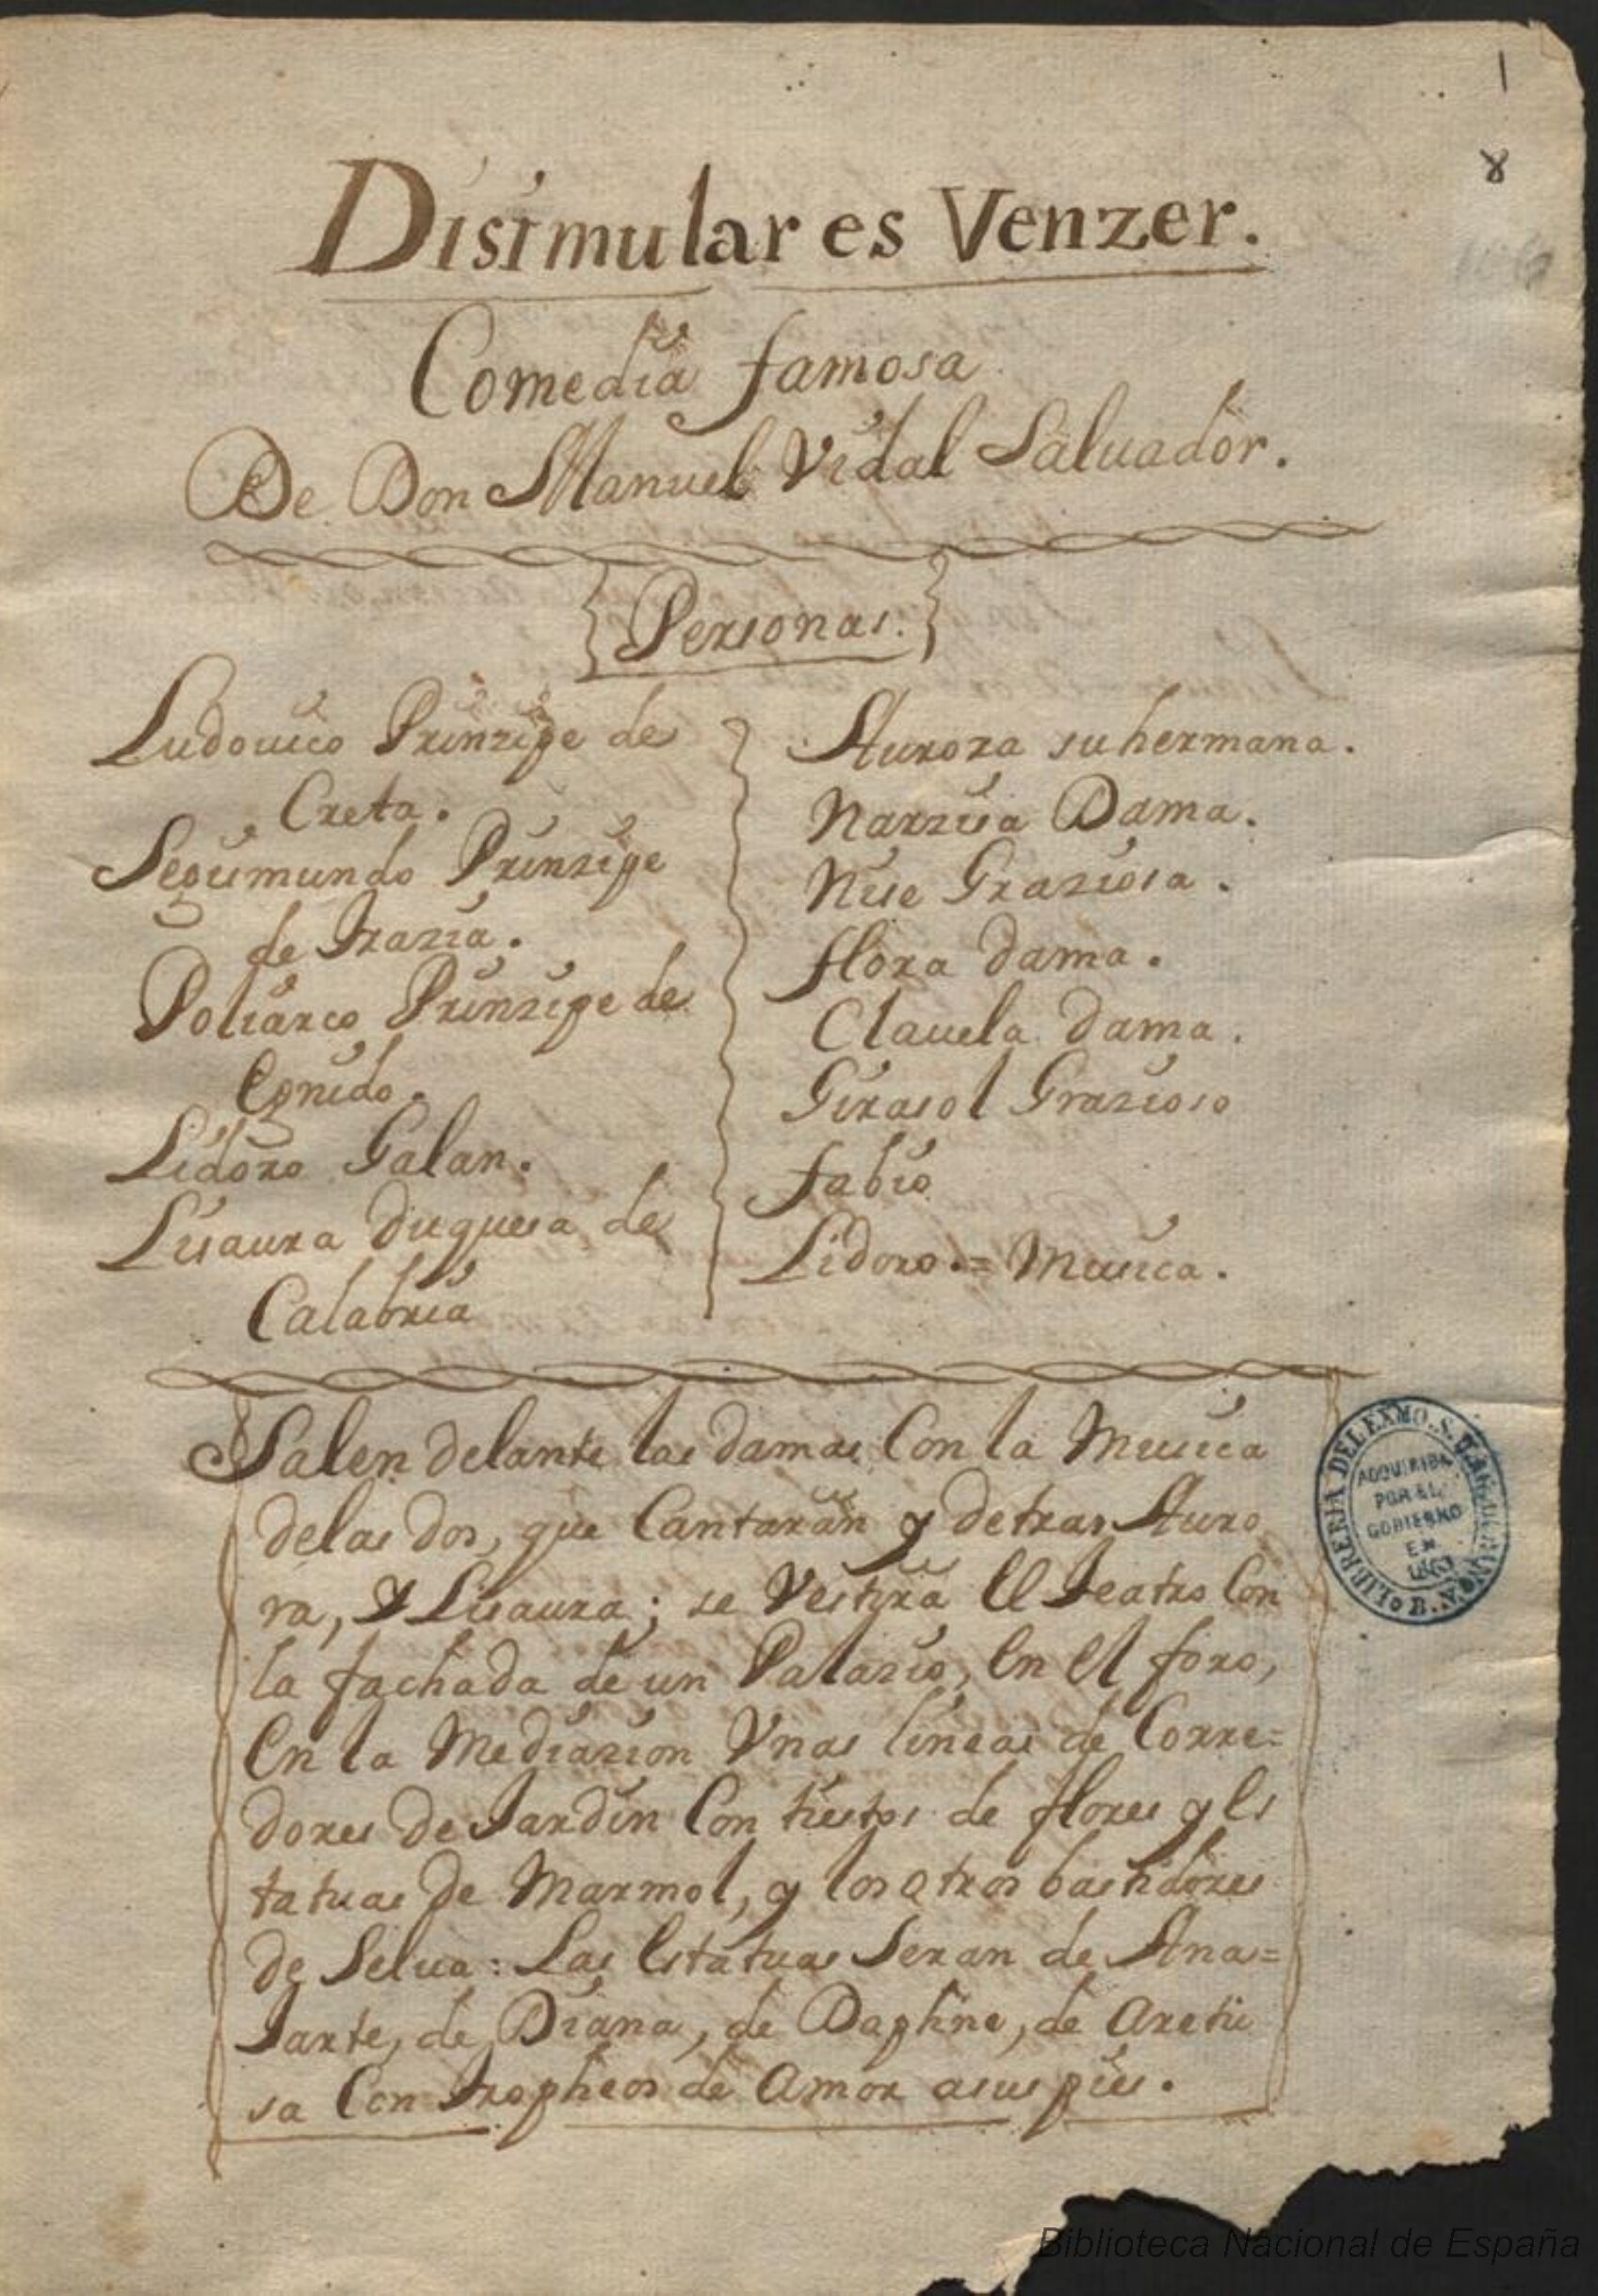 1
8
Disimular es Venzer.
Comedia famosa
De Don Manuel Vidal Saluador.
Personas.
Ludouico Prinzipe de
Creta.
Segismundo Prinzipe
de Trazia.
Poliarco Prinzipe de
Egnido.
Lidoro Galan.
Lisaura Duquesa de
Calabria
Aurora su hermana.
Narzisa Dama.
Nise Graziosa.
flora dama.
Clauela dama.
Girasol Grazioso
fabio
Lidoro.= Musica.
Salen delante las damas Con la Musica
delas dos, que Cantarán y detras Auro
ra, Y Lisaura; se Vestirá El Teatro Con
la fachada de un Palazio, En el foro,
En la Mediazion Vnas lineas de Corre=
dores de Jardin Con tiestos de flores y Es
tatuas de Marmol, y los otros bastidores
de Selua: Las Estatuas Seran de Ana=
Jarte, de Diana, de Daphne, de Aretu
sa Con tropheos de Amor asus pies.
LIBRERIA DEL EXMO. S. D. AG. DURAN B.N.
ADQUIRIDA
POR EL
GOBIERNO
EN
1863
Biblioteca Nacional de España